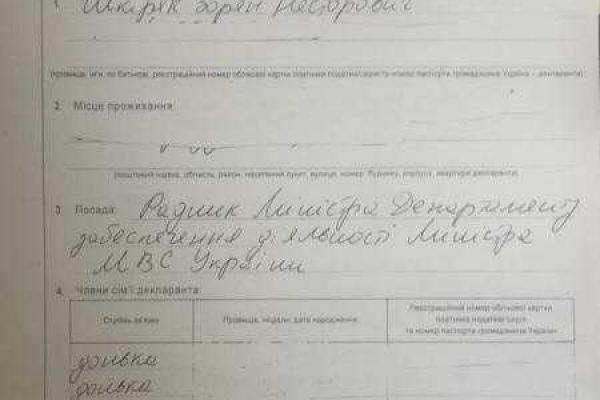 1. Шкіряк Зорян Несторович
(прізвище, ім'я, по батькові, реєстраційний номер облікової картки платника податків/серія та номер паспорта громадянина України – декларанта)
2. Місце проживання:
(поштовий індекс, область, район, населений пункт, вулиця, номер будинку, корпусу, квартири декларанта)
3. Посада: Радник Міністра Департаменту
забезпечення діяльності Міністра
МВС України
4. Члени сім'ї декларанта:
Ступінь зв'язку
Прізвище, ініціали, дата народження
Реєстраційний номер облікової картки
платника податків/серія
та номер паспорта громадянина України
донька
донька